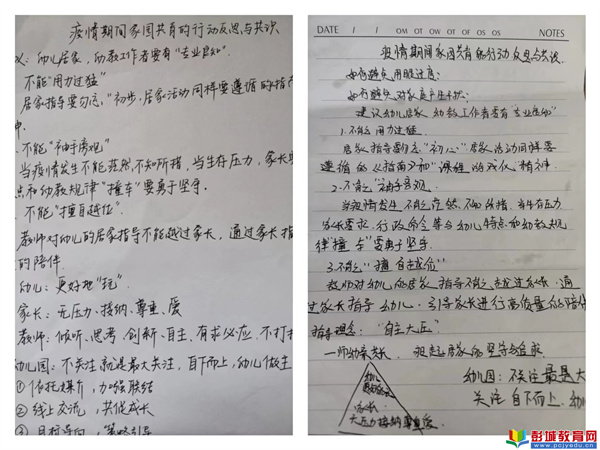 疫情期间家园共育的行动反思与共识
义：幼儿居家，幼教工作者要有"专业自知".
不能"用力过猛"
居家指导要勿忘，"初步，居家活动同样要遵循的指
中.
不能"袖手旁观"
当疫情发生不能茫然，不知所措，当生存压力，家长
点和幼教规律"撞车"要勇于坚守.
不能"擅自越位".
教师对幼儿的居家指导不能越过家长，通过家长指
的陪伴.
幼儿：更好地"玩"
家长：无压力、接纳、尊重、爱
教师：倾听、思考、创新、自主、有求必应，不打扰
幼儿园：不关注就是最大关注，自下而上，幼儿做主
① 依托媒介，加强联结
② 线上交流，共促成长
③ 目标导向，策略引导
DATE / / OM OT OW OT OF OS OS NOTES
疫情期间家园共育的行动反思与共识.
如何避免用眼过度：
如何避免对家长产生干扰：
建议幼儿居家，幼教工作者要有"专业自知"
1.不能用力过猛.
居家指导要勿忘"初心"居家活动同样要
遵循的《指南》和"课程游戏化"精神.
2.不能"袖手旁观.
当疫情发生不能茫然、不知所措，当生存压力
家长要求，行政命令等与幼儿特点和幼教规
律"撞车"要勇于坚守.
3.不能"擅自越位"
教师对幼儿的居家指导不能越过家长，通
过家长指导幼儿，引导家长进行高质量的陪伴
指导理念："自主大区"
幼儿
家长
无压力接纳尊重爱
幼儿园：不关注最是大
关注 自下而上，幼
彭城教育网
www.pcjyedu.com